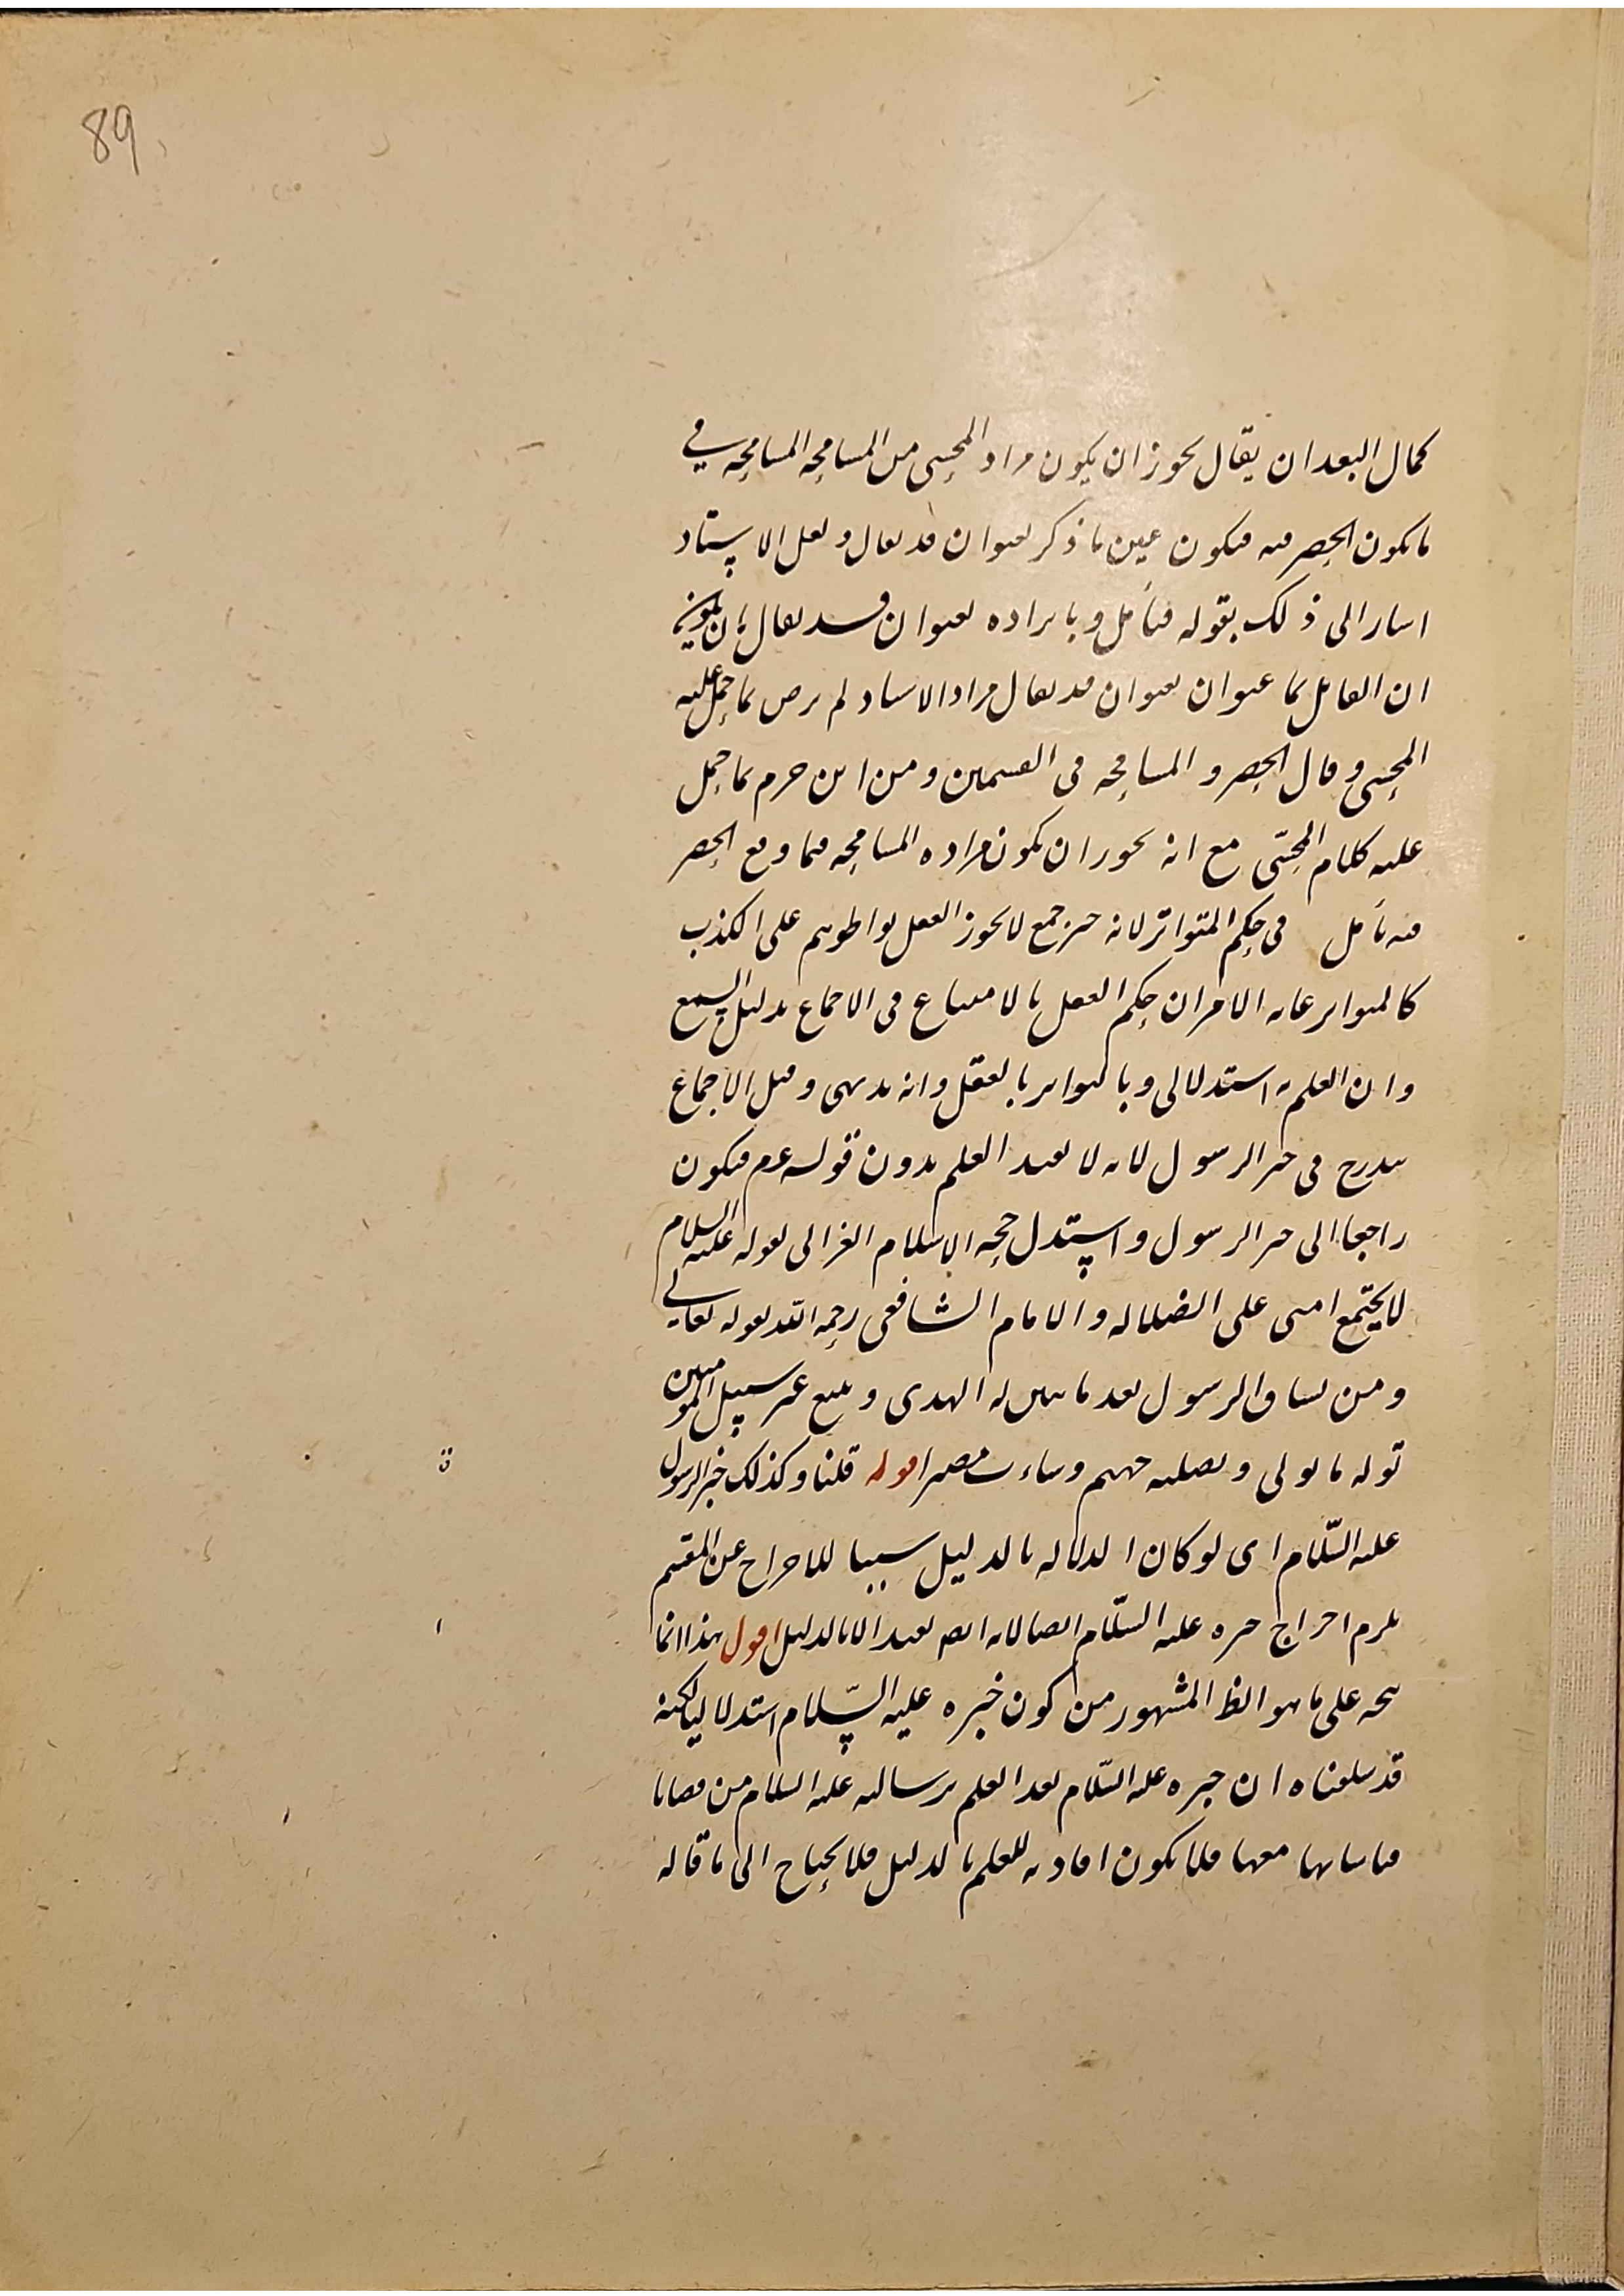 89
كمال البعد ان يقال يجوز ان يكون مراد المحشى من المسامحه المسامحه في
ما يكون الحصر فيه فيكون عين ما ذكر بعنوان قد يقال ولعل الاستاد
اشار الى ذلك بقوله فتأمل وبايراده بعنوان قد يقال
ان القائل بما عنوان بعنوان قد يقال مراد الاستاد لم يرض بما حمل عليه
المحشى وقال الحصر والمسامحه في القسمين ومن اين جزم بما حمل
عليه كلام المحشّى مع انه يجوز ان يكون مراده المسامحه فيما وقع الحصر
فيه تأمل في حكم المتواتر لانه خبر جمع لا يجوز العقل تواطوهم على الكذب
كالمتواتر غايه الامر ان حكم العقل بالامتناع في الاجماع بدليل السمع
وان العلم به استدلالى وبالتواتر بالعقل وانه بديهى وقيل الاجماع
يندرج في خبر الرسول لانه لا يفيد العلم بدون قوله عم فيكون
راجعا الى خبر الرسول واستدل حجه الاسلام الغزالى بقوله عليه السلام
لا يجتمع امتى على الضلاله والامام الشافعى رحمه الله بقوله تعالى
ومن يشاقق الرسول بعد ما تبين له الهدى ويتبع غير سبيل المومنين
نوله ما تولى ونصليه جهنم وساءت مصيرا قوله قلنا وكذلك خبر الرسول
عليه السّلام اى لو كان الدلاله بالدليل سببا للاخراج عن المقسم
يلزم اخراج خبره عليه السّلام ايضا لانه ايضا يفيد الا بالدليل اقول هذا انما
يتجه على ما هو الظ المشهور من كون خبره عليه السّلام استدلاليا لكنه
قد سلفناه ان خبره عليه السّلام بعد العلم برسالته عليه السلام من قضايا
قياساتها معها فلا يكون افادته للعلم بالدليل فلا يحتاج الى ما قاله